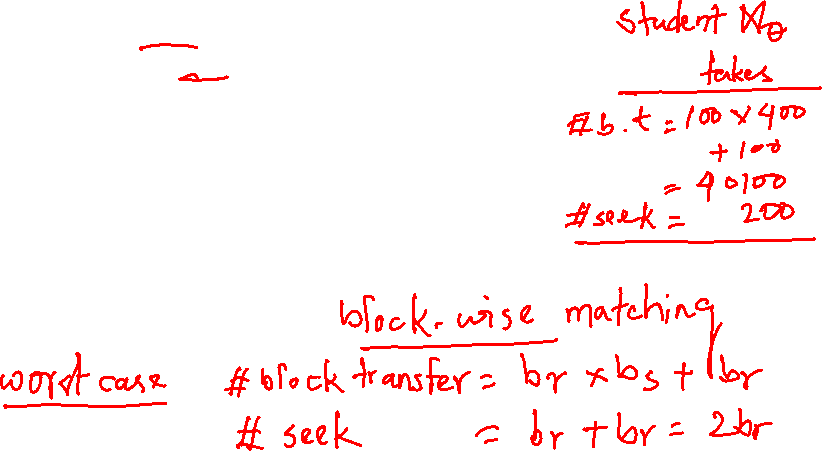 student ⋈θ
takes
#b.t = 100 × 400
+ 100
= 40100
#seek = 200
block-wise matching
worst case # block transfer = br × bs + br
# seek = br + br = 2br